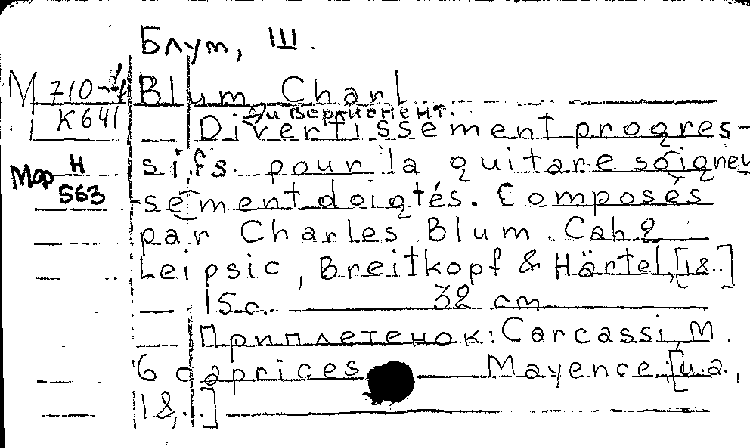 Блум, Ш.
М 710-4 Blum Charl
Дивертисмент.
К641 Divertissement progres-
Мор Н sifs pour la guitare soigneu
563 sement doigtés. Composés
par Charles Blum. Cah 2
Leipsic, Breitkopf & Härtel, [18..]
15 c. 32 cm
Приплетенок: Carcassi, M.
6 caprices Mayence [u.a.,
18,..]